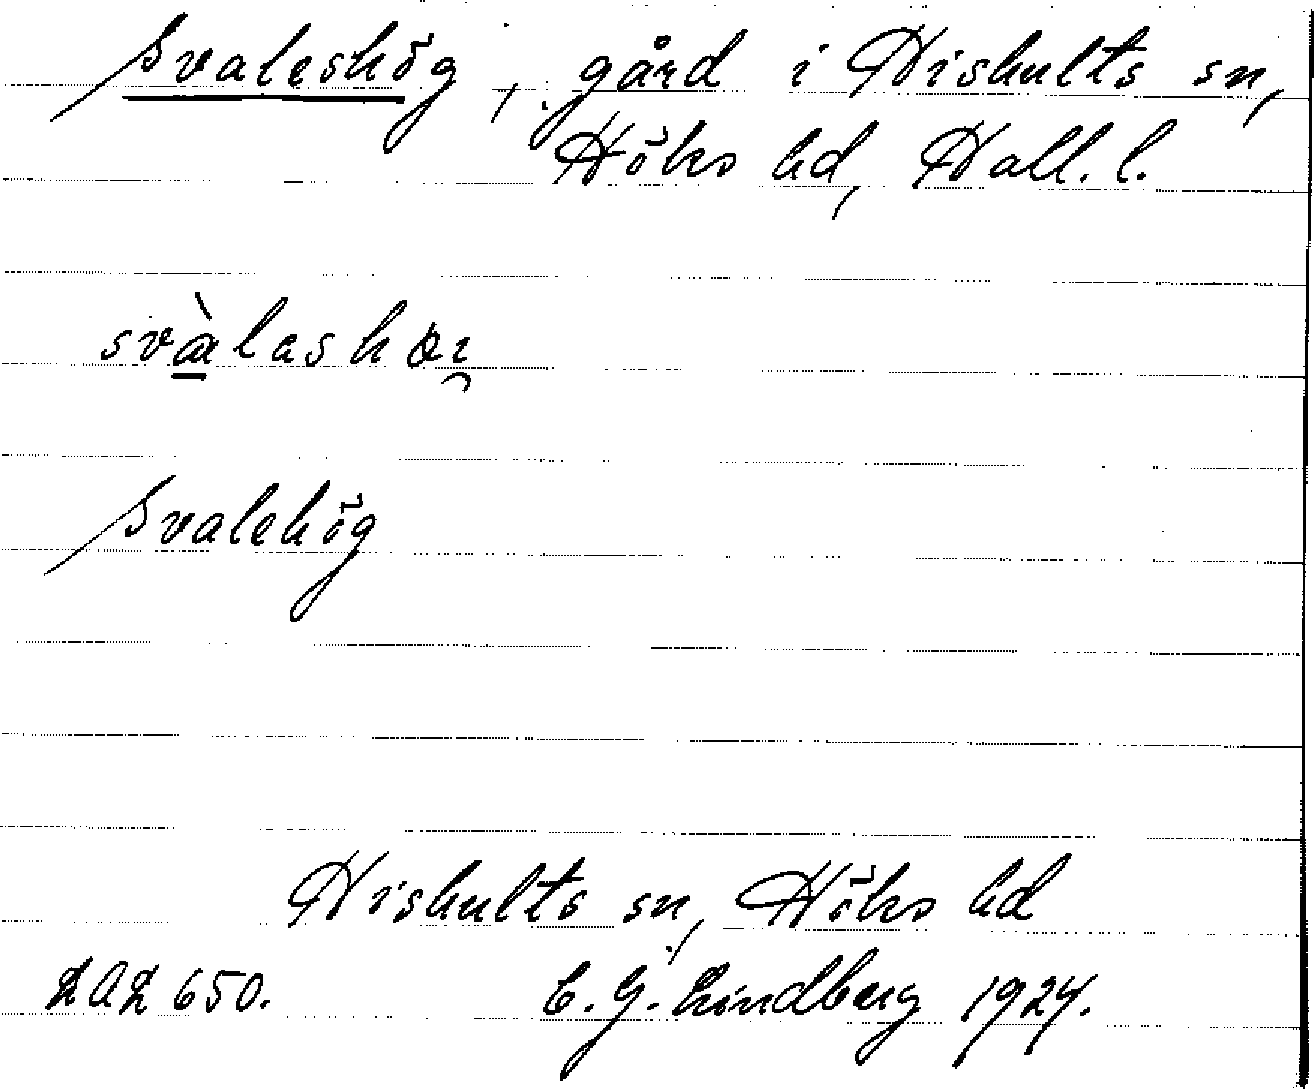 Svaleshög, gård i Hishults sn,
Höks hd, Hall. l.
svàlashøi̯
Svalehög
Hishults sn, Höks hd
LAL 650. C. G. Lindberg 1924.